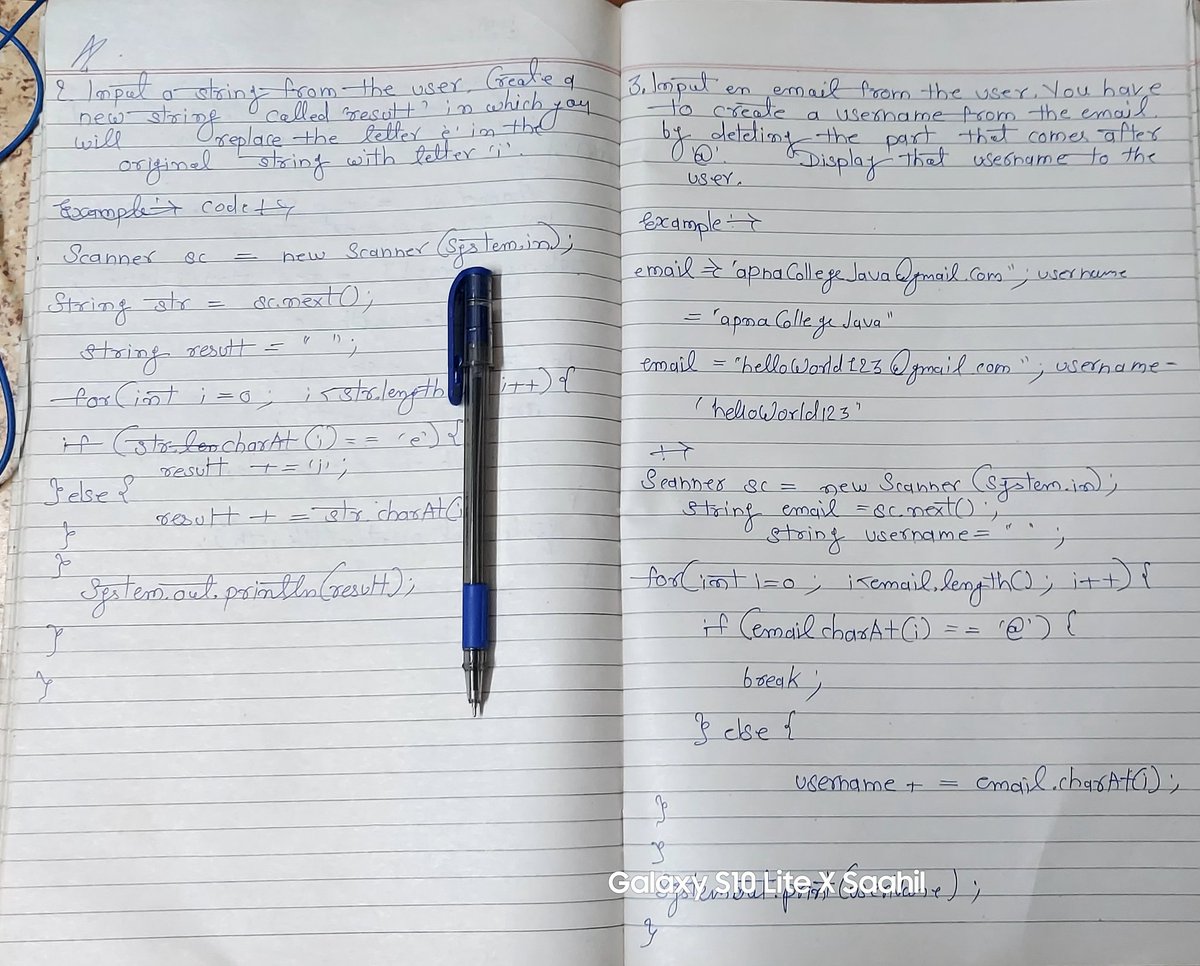 2 Input a string from the user. Create a
new string called 'result' in which you
will replace the letter 'e' in the
original string with letter 'i'.
Example:→ code +→
Scanner sc = new Scanner (System.in);
String str = sc.next();
string result = " ";
for(int i=0; i<str.length i++) {
if (str.len charAt (i) == 'e') {
result += 'i';
} else {
result + = str.charAt(i
}
}
System.out.println(result);
}
}
3. Input en email from the user. You have
to create a username from the email.
by deleting the part that comes after
'@'. Display that username to the
user.
Example:→
email ⇒ 'apnaCollegeJava@gmail.com"; username
= 'apnaCollegeJava"
email = "helloWorld123@gmail.com"; username=
'helloWorld123'
+→
Scanner sc = new Scanner (System.in);
string email = sc.next();
string username = " ";
for(int i=0; i<email.length(); i++) {
if (email charAt(i) == '@') {
break;
} else {
username + = email.charAt(i);
}
}
Galaxy S10 Lite X Saahil
System.out.print(username);
}